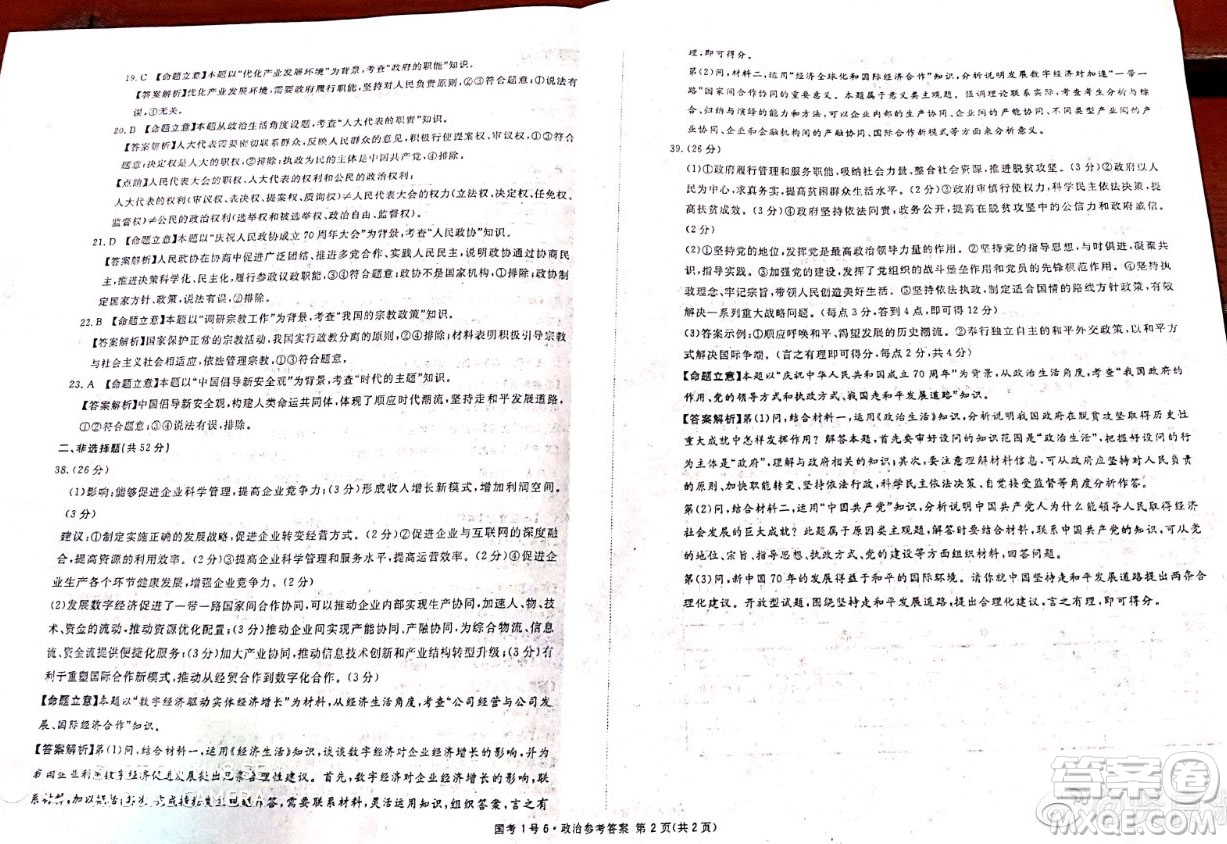 19. C 【命题立意】本题以“优化产业发展环境”为背景,考查“政府的职能”知识。
【答案解析】优化产业发展环境,需要政府履行职能,坚持对人民负责原则,②④符合题意;①说法有误,③无关。
20. B 【命题立意】本题从政治生活角度设题,考查“人大代表的职责”知识。
【答案解析】人大代表需要密切联系群众,反映人民群众的意见,积极行使提案权、审议权,①③符合题意;决定权是人大的职权,②排除;执政为民的主体是中国共产党,④排除。
【点睛】人民代表大会的职权、人大代表的权利和公民的政治权利:
人大代表的权利(审议权、表决权、提案权、质询权)≠人民代表大会的职权(立法权、决定权、任免权、监督权)≠公民的政治权利(选举权和被选举权、政治自由、监督权)
21. D 【命题立意】本题以“庆祝人民政协成立 70 周年大会”为背景,考查“人民政协”知识。
【答案解析】人民政协在协商中促进广泛团结、推进多党合作、实践人民民主,说明政协通过协商民主,推进决策科学化、民主化,履行参政议政职能,③④符合题意;人民政协不能行使行政职能、制定国家方针、政策,①②排除。
22. B 【命题立意】本题以“调研宗教工作”为背景,考查“我国的宗教政策”知识。
【答案解析】国家保护正常的宗教活动,我国实行政教分离的原则,②④排除;材料表明积极引导宗教与社会主义社会相适应,依法管理宗教,①③符合题意。
23. A 【命题立意】本题以“中国倡导新安全观”为背景,考查“时代的主题”知识。
【答案解析】中国倡导新安全观,构建人类命运共同体,体现了顺应时代潮流,坚持走和平发展道路,①②符合题意;③④说法有误,排除。
二、非选择题(共 52 分)
38. (26 分)
(1)影响:能够促进企业科学管理,提高企业竞争力;(3 分)形成收入增长新模式,增强了利润空间。
(3 分)
建议:①制定实施正确的发展战略,促进企业转变经营方式。(2 分)②促进企业与互联网的深度融合,提高资源的利用效率。(2 分)③提高企业科学管理和服务水平,提高运营效率。(2 分)④促进企业生产各个环节健康发展,增强企业竞争力。(2 分)
(2)发展数字经济促进了一带一路国家间合作协同,可以推动企业内部实现规模经济,促进人、物、技术、资金的流动,推动资源优化配置;(3 分)推动企业间实现产能协同、产业协同,为综合物流、信息流、资金流提供便捷化服务;(3 分)加大产业协同,推动信息技术创新和产业结构转型升级;(3 分)有利于重塑国际合作新模式,推动从经贸合作到数字化合作。(3 分)
【命题立意】本题以“数字经济驱动实体经济增长”为材料,从经济生活角度,考查“公司经营与公司发展、国际经济合作”知识。
【答案解析】第(1)问,结合材料一,运用《经济生活》知识,谈谈数字经济对企业经济增长的影响,并为我国企业利用数字经济促进发展提出几条合理性建议。首先,数字经济对企业经济增长的影响,需要联系
灵活运用知识,组织答案,言之有
理,即可得分。
第(2)问,材料二,运用“经济全球化和国际经济合作”知识,分析说明发展数字经济对加速“一带一路”国家间合作协同的重要意义。本题属于意义类主观题。强调理论联系实际,考查考生的分析与综合、归纳与演绎的能力,可以从企业内部的规模经济、企业间的产能协同、不同类型产业间的产业协同、企业和金融机构间的产融协同、国际合作新模式等方面来分析意义。
39. (26 分)
(1)①政府履行管理和服务职能,吸纳社会力量,整合社会资源,推进脱贫攻坚。(3 分)②政府以人民为中心,求真务实,提高贫困群众生活水平。(3 分)③政府审慎行使权力,科学民主依法行政,提高扶贫成效。(3 分)④政府坚持依法问责,政务公开,提高在脱贫攻坚中的公信力和政府权威。
(2 分)
(2)①坚持党的地位,发挥党是最高政治领导力量的作用。②坚持党的指导思想,与时俱进,凝聚共识,指导实践。③坚持党的建设,发挥了党组织的战斗堡垒作用和党员的先锋模范作用。④坚持执政理念、牢记宗旨,带领人民创造美好生活。⑤坚持依法执政,制定适合国情的路线方针政策,解决一系列重大战略问题。(每点 3 分,答出四点,即可得 12 分)
(3)答案示例:①顺应呼唤和平、渴望发展的历史潮流。②奉行独立自主的和平外交政策,以和平方式解决国际争端。(言之有理即可得分,每点 2 分,共 4 分)
【命题立意】本题以“庆祝中华人民共和国成立 70 周年”为材料,从政治生活角度,考查“我国政府的作用、党的领导方式和执政方式、我国走和平发展道路”知识。
【答案解析】第(1)问,结合材料一,运用《政治生活》知识,分析说明我国政府在脱贫攻坚取得历史性重大成就中是如何发挥作用?解答本题,首先要审好设问的知识范围是“政治生活”,设问中的行为主体是“政府”,理解与政府相关的知识。然后要审读理解材料信息,可以从政府应坚持为人民服务的原则、加快职能转变、坚持依法行政,科学民主依法决策、自觉接受监督等角度分析作答。
第(2)问,结合材料二,运用“中国共产党”知识,分析说明中国共产党人为什么能够领导人民取得经济社会发展的巨大成就?此题属于原因类主观题,解答时要结合材料,联系中国共产党的知识,可以从党的地位、宗旨、指导思想、执政方式、党的建设等方面组织材料,回答问题。
第(3)问,新中国 70 年的发展得益于和平的国际环境。请你就中国坚持走和平发展道路提出两条合理化建议。开放型试题,围绕坚持走和平发展道路,提出合理化建议,言之有理,即可得分。
国考 1 号 6·政治参考答案 第 2 页(共 2 页)
答案卷